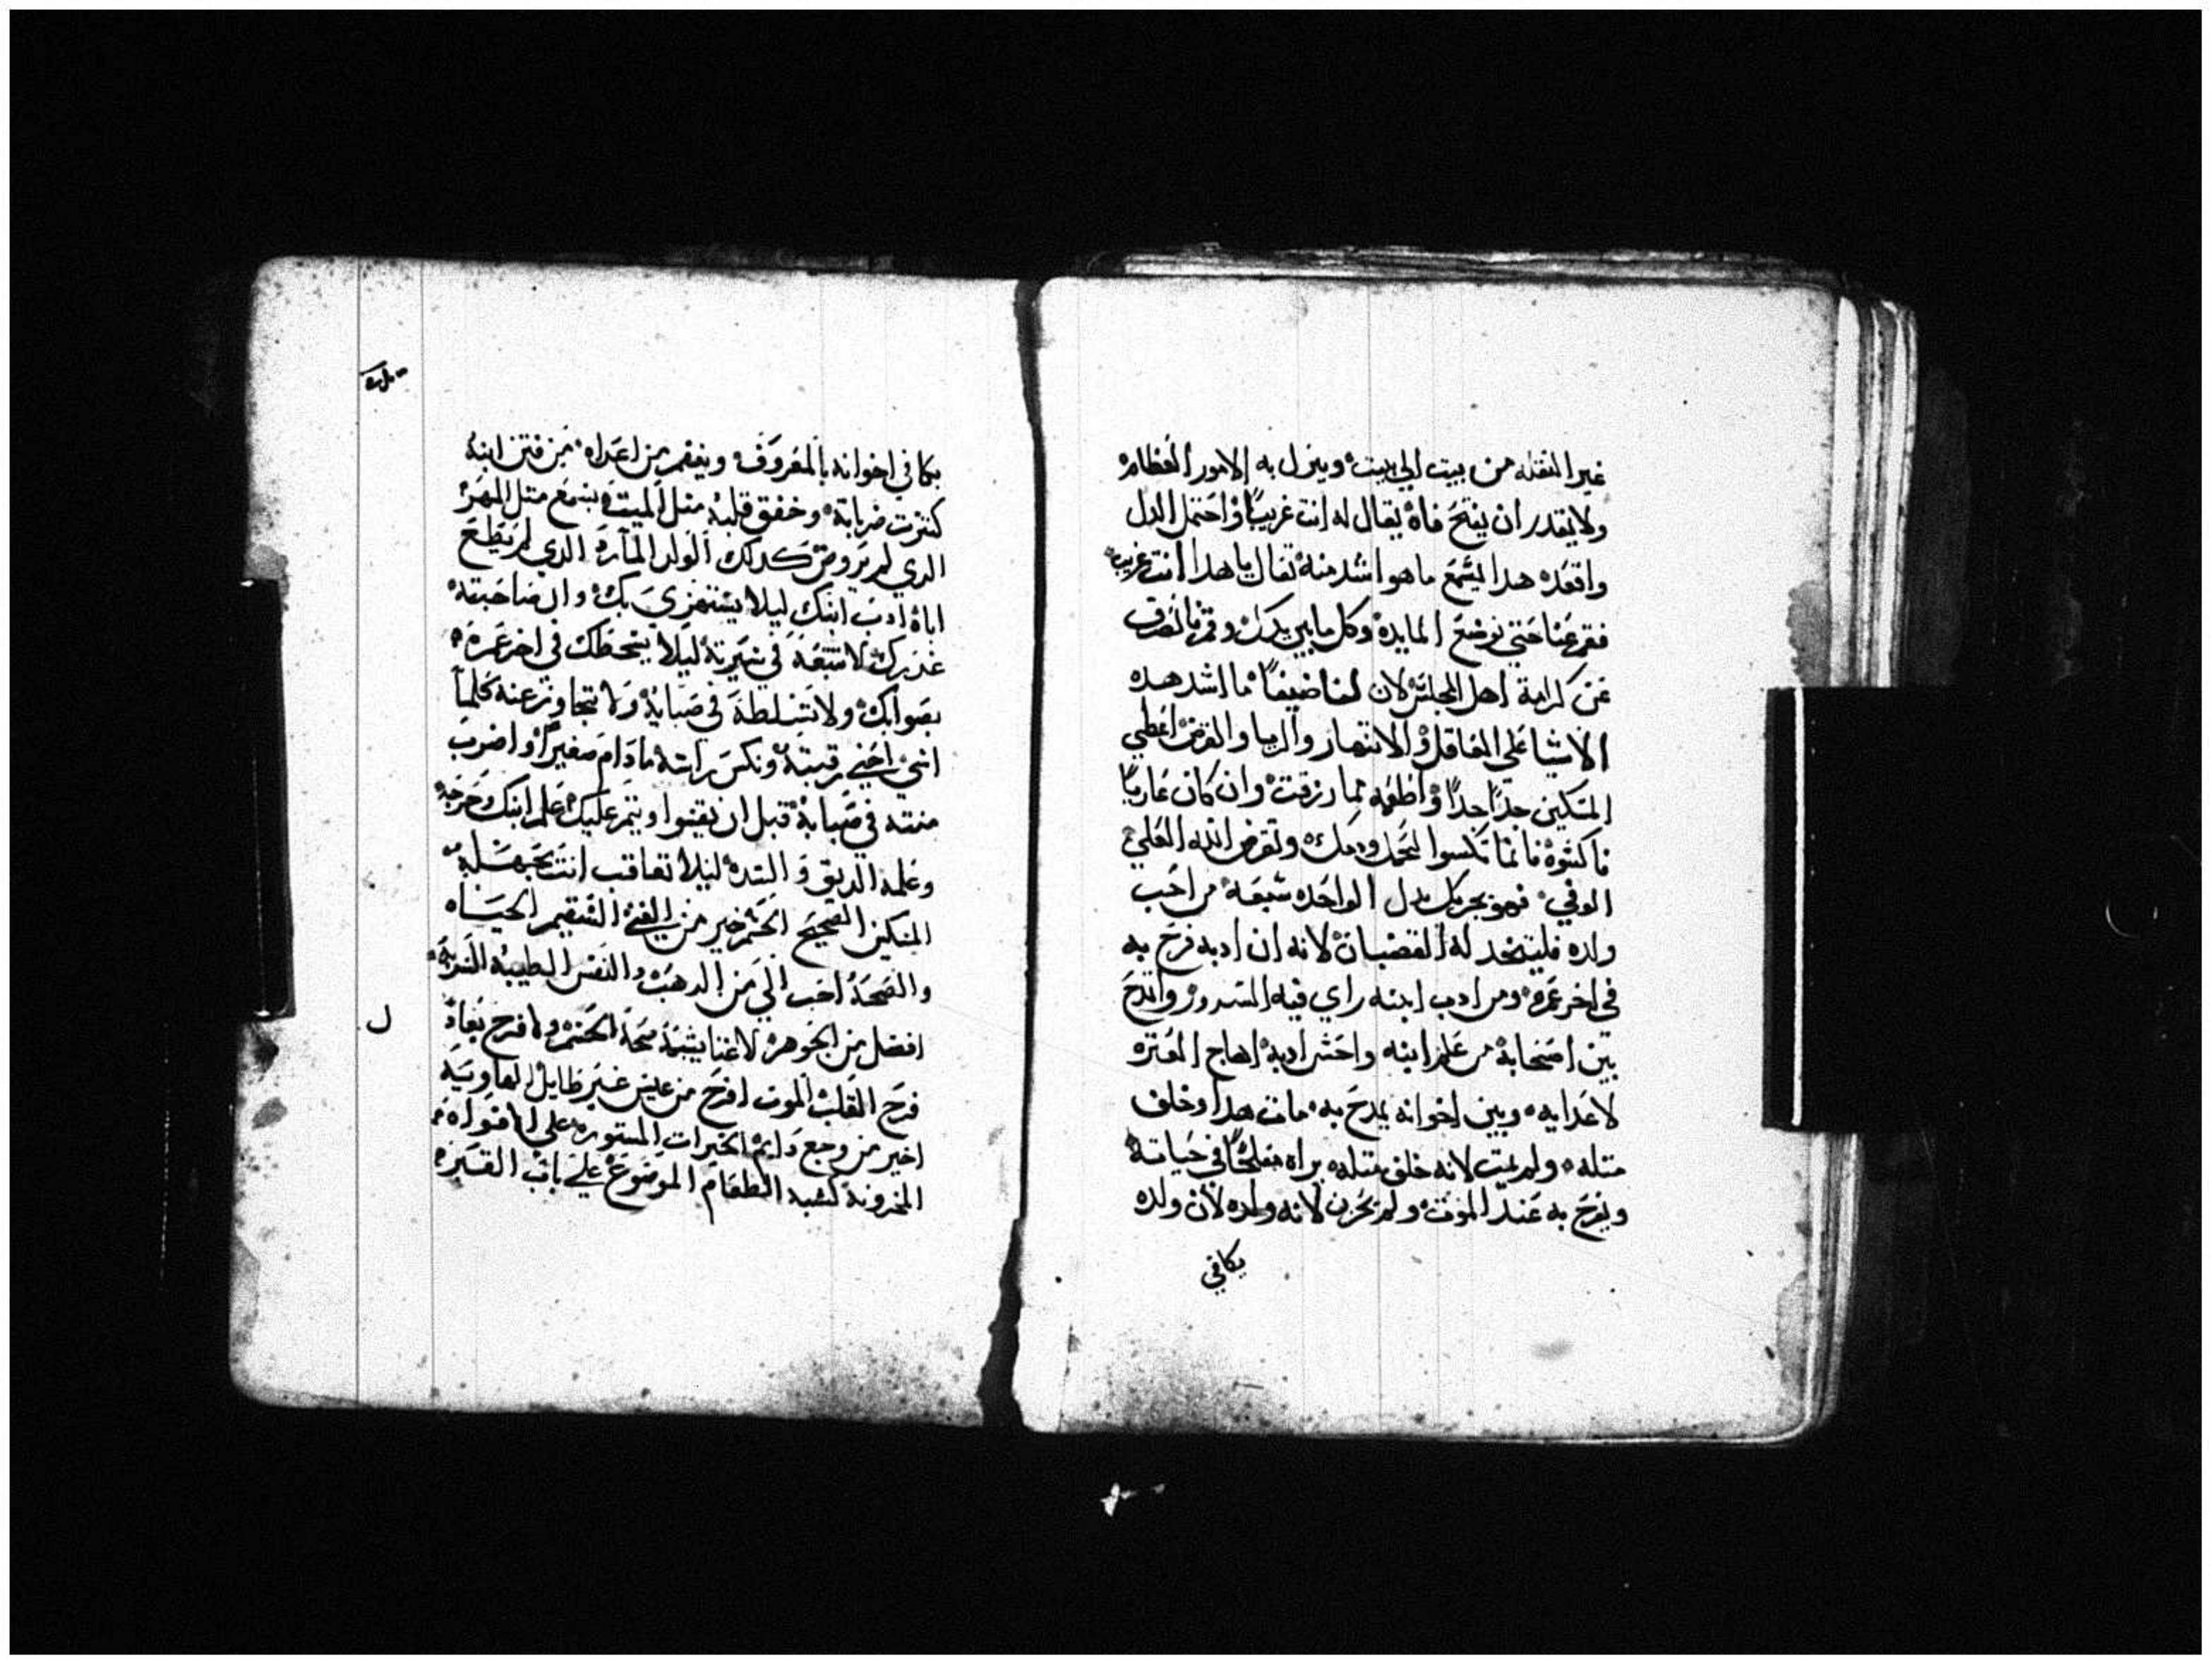 غير النقله من بيت الي بيت وينزل به الامور العظام
ولا يقدر ان يفتح فاه يقال له انت غريبًا واحتمل الدل
واقعده هدا ليسمع ما هو اشد منه تعال يا هدا انت غريب
فقم عنا حتي نوضع المايده وكل ما بين يديك وقم فانصرف
عن كرامة اهل المجلس لان لنا ضيفًا ما اشد هده
الاشيا علي العاقل والانتهار والربا والقرض اعطي
المسكين جدًا جدًا واطعمه مما رزقت وان كان عاريًا
فاكسوه فانما تكسوا لحمك ودمك وتقرض الله العلي
الوفي فهو يجزيك بدل الواحده سبعه من احب
ولده فليتخد له القضبان لانه ان ادبه فرح به
في اخر عمره ومن ادب ابنه راي فيه السرور وامتدح
بين اصحابه من علم ابنه واحسن ادبه اهاج الغيره
لاعدايه وبين اخوانه يمدح به مات هدا وخلف
متله ولم يمت لانه خلف متله يراه مفلحًا في حياته
ويفرح به عند الموت ولم يحزن لانه ولده لان ولده
يكافي
يكافي اخوانه بالمعروف وينتقم من اعداه من فتن ابنه
كترت ضرباته وخفق قلبه متل الميت يسمع متل المهر
الدي لم يروض كدلك الولد المارد الدي لم يطع
اباه ادب ابنك ليلا يستهزي بك وان صاحبته
غدرك لا تتبعه في سيرته ليلا يسخطك في اخر عمره
بصوابك ولا تسلطه في صباه ولا تتجاوز عنه كلما
اسي احني رقبته ونكس راسه ما دام صغيرًا واضرب
متنه في صباه قبل ان يقسوا ويتمر عليك علم ابنك وخرجه
وعلمه الديق والشده ليلا تعاقب انت بجهله
المسكين الصحيح الجسم خير من الغني السقيم الحياه
والصحه احب الي من الدهب والنفس الطيبه
افضل من الجوهر لا غنا يشبه صحة الجسم ولا فرح يعادل
فرح القلب الموت افرح من عيش غير طايل الهاويه
اخير من وجع دايم الخيرات المستوره علي الافواه
المخزونه كشبه الطعام الموضوع علي باب القبر
ل